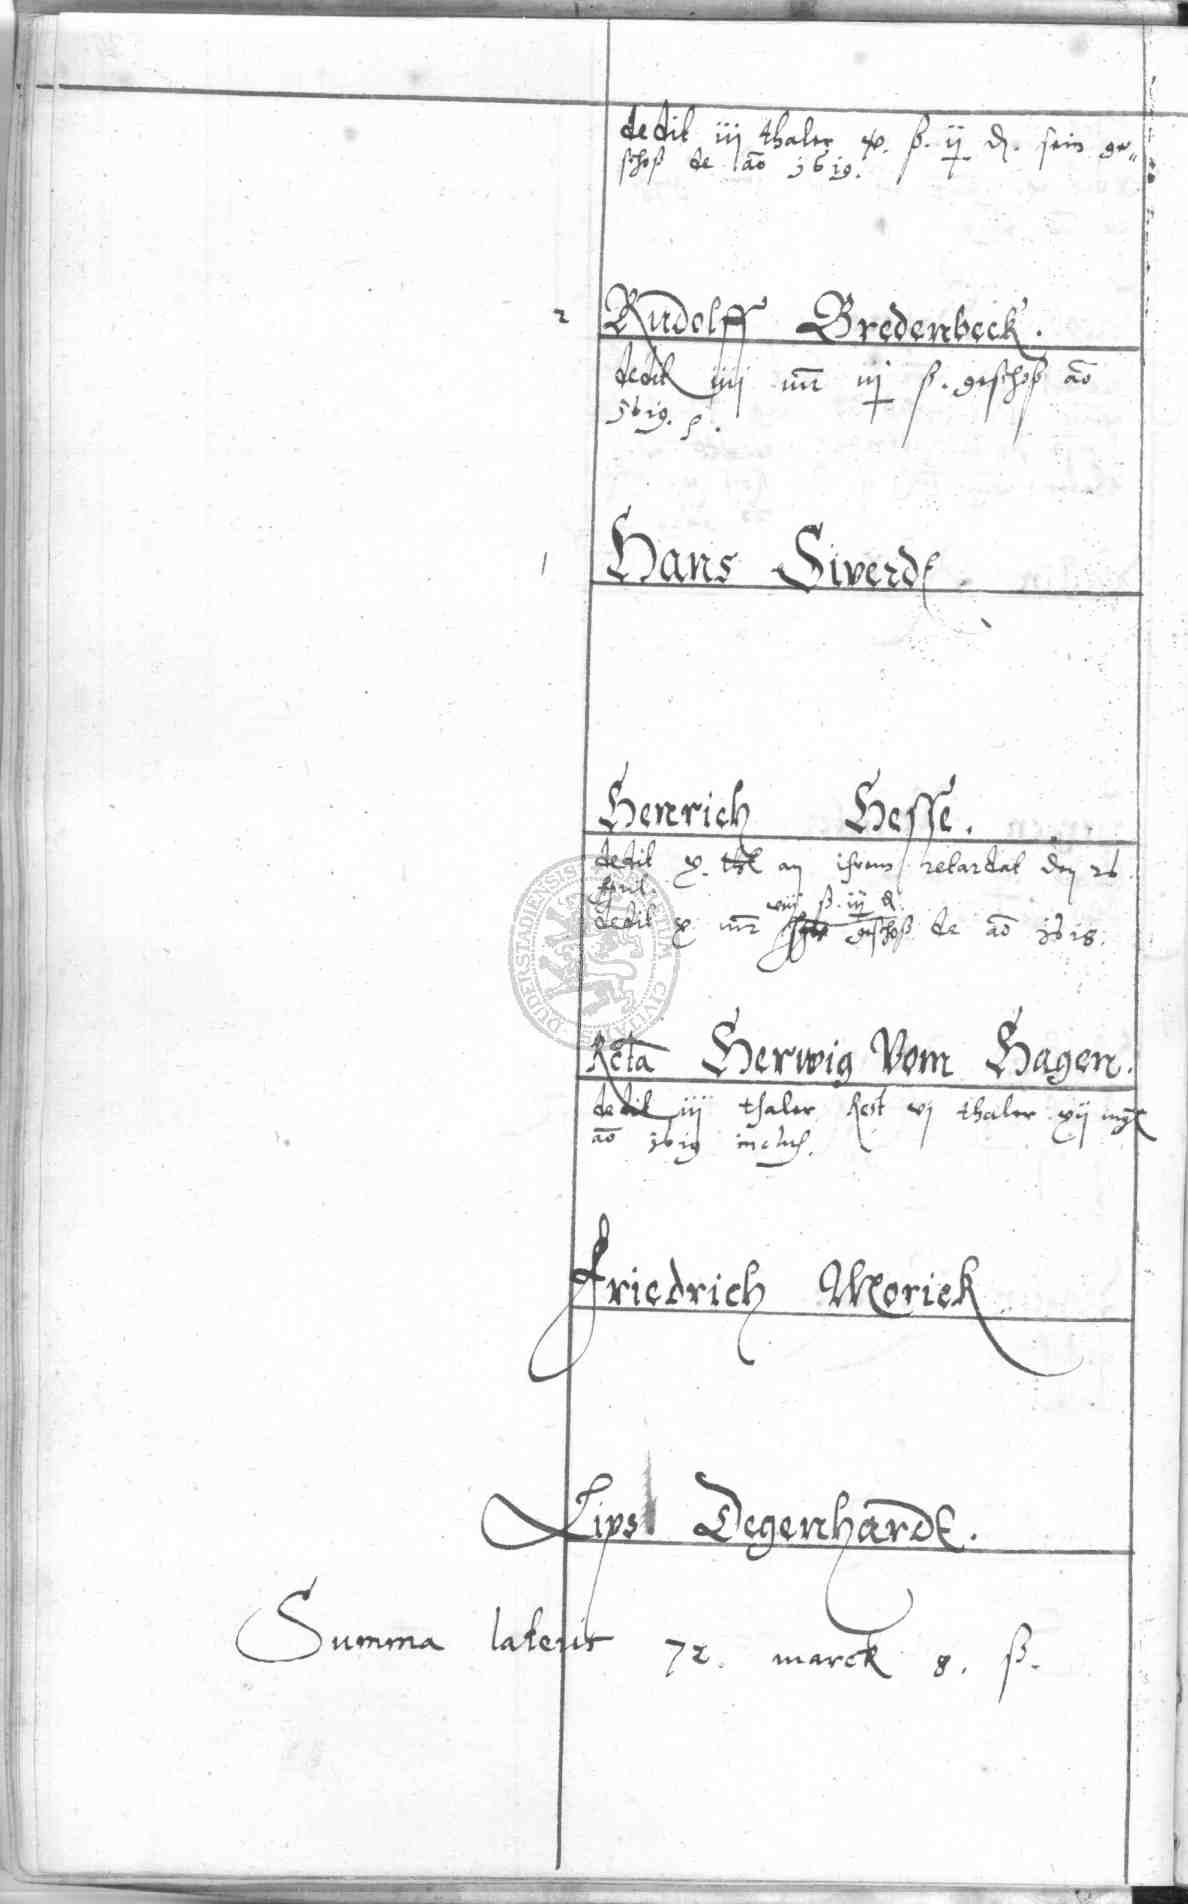 dedit iij thaler x. ß. ij d. sein ge„
schoß de ao 1619.
2 Rudolff Bredenbeck.
dedit iiij mr iij ß. geschoß ao
1619.
1 Hans Siverdt
Henrich Hesse.
dedit x. thl an ihrem retardat den 26
April.
viij ß. iij d.
dedit x mr geschoß de ao 1618.
Rcta Herwig Vom Hagen.
dedit iij thaler Rest vj thaler xij mgl
ao 1619 inclus.
Friedrich Morick
Lips Degenhardt.
Summa lateris 72. marck 8. ß.
SIGILLUM CIVITATIS DUDERSTADIENSIS